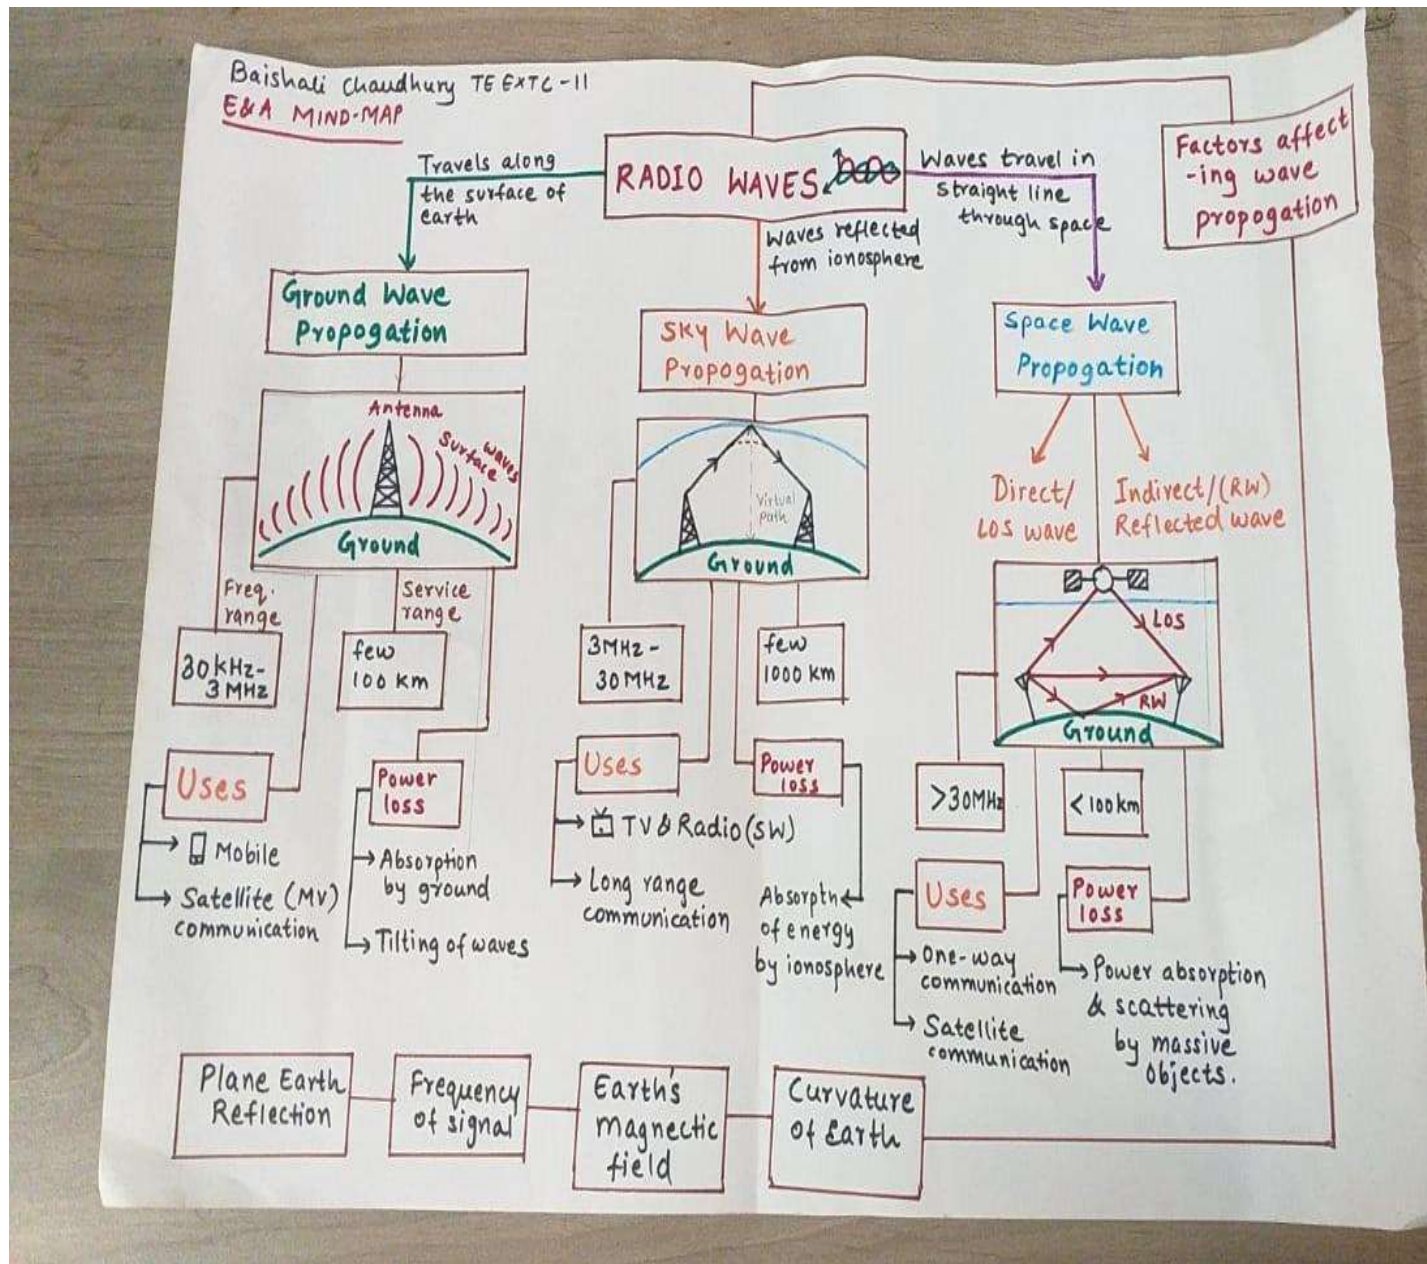 Baishali Chaudhury TE EXTC-11
E&A MIND-MAP
RADIO WAVES
Factors affect
-ing wave
propogation
Travels along
the surface of
earth
Waves reflected
from ionosphere
Waves travel in
straight line
through space
Ground Wave
Propogation
Antenna
Surface waves
Ground
Freq.
range
30kHz-
3MHz
Service
range
few
100 km
Uses
Mobile
Satellite (MV)
communication
Power
loss
Absorption
by ground
Tilting of waves
Sky Wave
Propogation
Virtual
Path
Ground
3MHz-
30MHz
few
1000 km
Uses
TV & Radio (SW)
Long range
communication
Power
loss
Absorptn
of energy
by ionosphere
Space Wave
Propogation
Direct/
LOS wave
Indirect/(RW)
Reflected wave
LOS
RW
Ground
>30MHz
<100km
Uses
One-way
communication
Satellite
communication
Power
loss
Power absorption
& scattering
by massive
objects.
Plane Earth
Reflection
Frequency
of signal
Earth's
magnectic
field
Curvature
of Earth